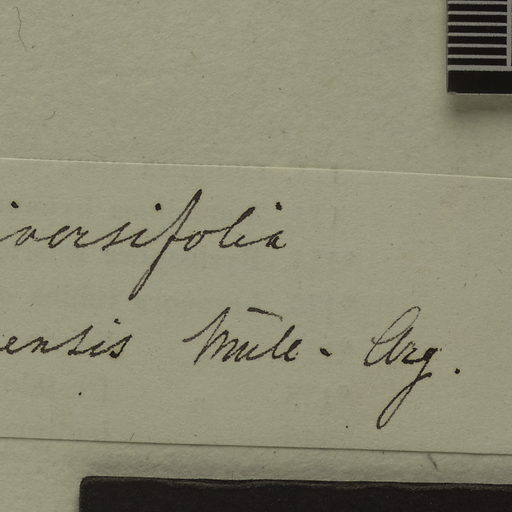 iversifolia
ensis Müll-Arg.